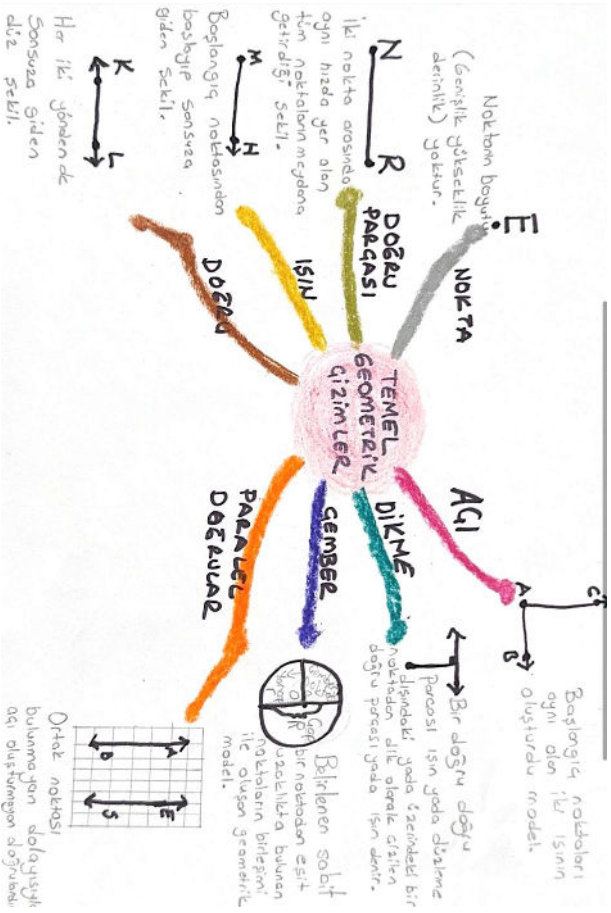 TEMEL
GEOMETRİK
ÇİZİMLER
NOKTA
E
Noktanın boyutu
(Genişlik yükseklik
derinlik) yoktur.
DOĞRU
PARÇASI
N R
İki nokta arasında
aynı hızda yer alan
tüm noktaların meydana
getirdiği şekil.
IŞIN
M H
Başlangıç noktasından
başlayıp sonsuza
giden şekil.
DOĞRU
K L
Her iki yönden de
Sonsuza giden
düz şekil.
AÇI
C
A
B
Başlangıç noktaları
aynı olan iki ışının
oluşturdu model.
DİKME
Bir doğru doğru
parçası ışın yada düzleme
dışındaki yada üzerindeki bir
noktadan dik olarak çizilen
doğru parçası yada ışın denir.
ÇEMBER
Belirlenen sabit
bir noktadan eşit
uzaklıkta bulunan
noktaların birleşimi
ile oluşan geometrik
model.
PARALEL
DOĞRULAR
A
B
E
S
Ortak noktası
bulunmayan dolayısıyla
açı oluşturmayan doğrulardır